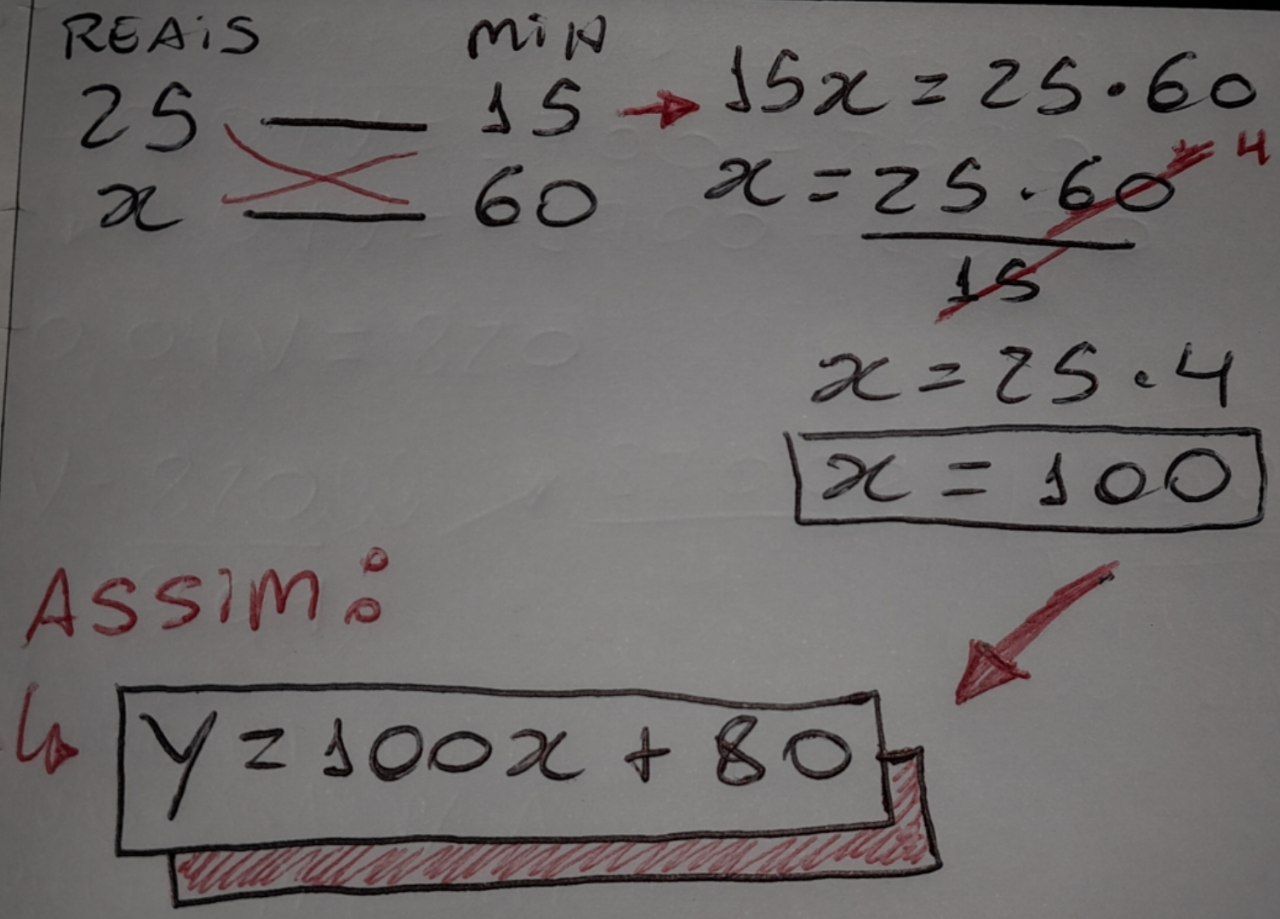 REAiS MiN
25 — 15 → 15x = 25 · 60
x — 60 x = 25 · 60 4
15
x = 25 · 4
x = 100
ASSiM:
↳ y = 100x + 80